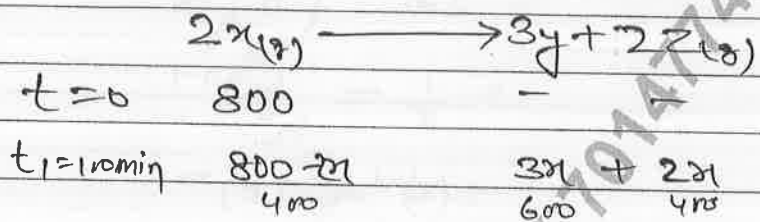 2x(g) ⟶ 3y + 2z(g)
t=0 800 - -
t1=10min 800-2x 3x + 2x
400 600 400
7014774